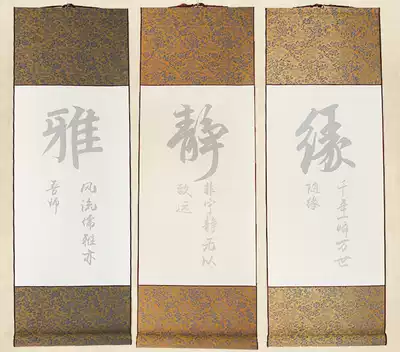 雅
风流儒雅亦
吾师
静
非宁静无以
致远
缘
千年一瞬万世
随缘